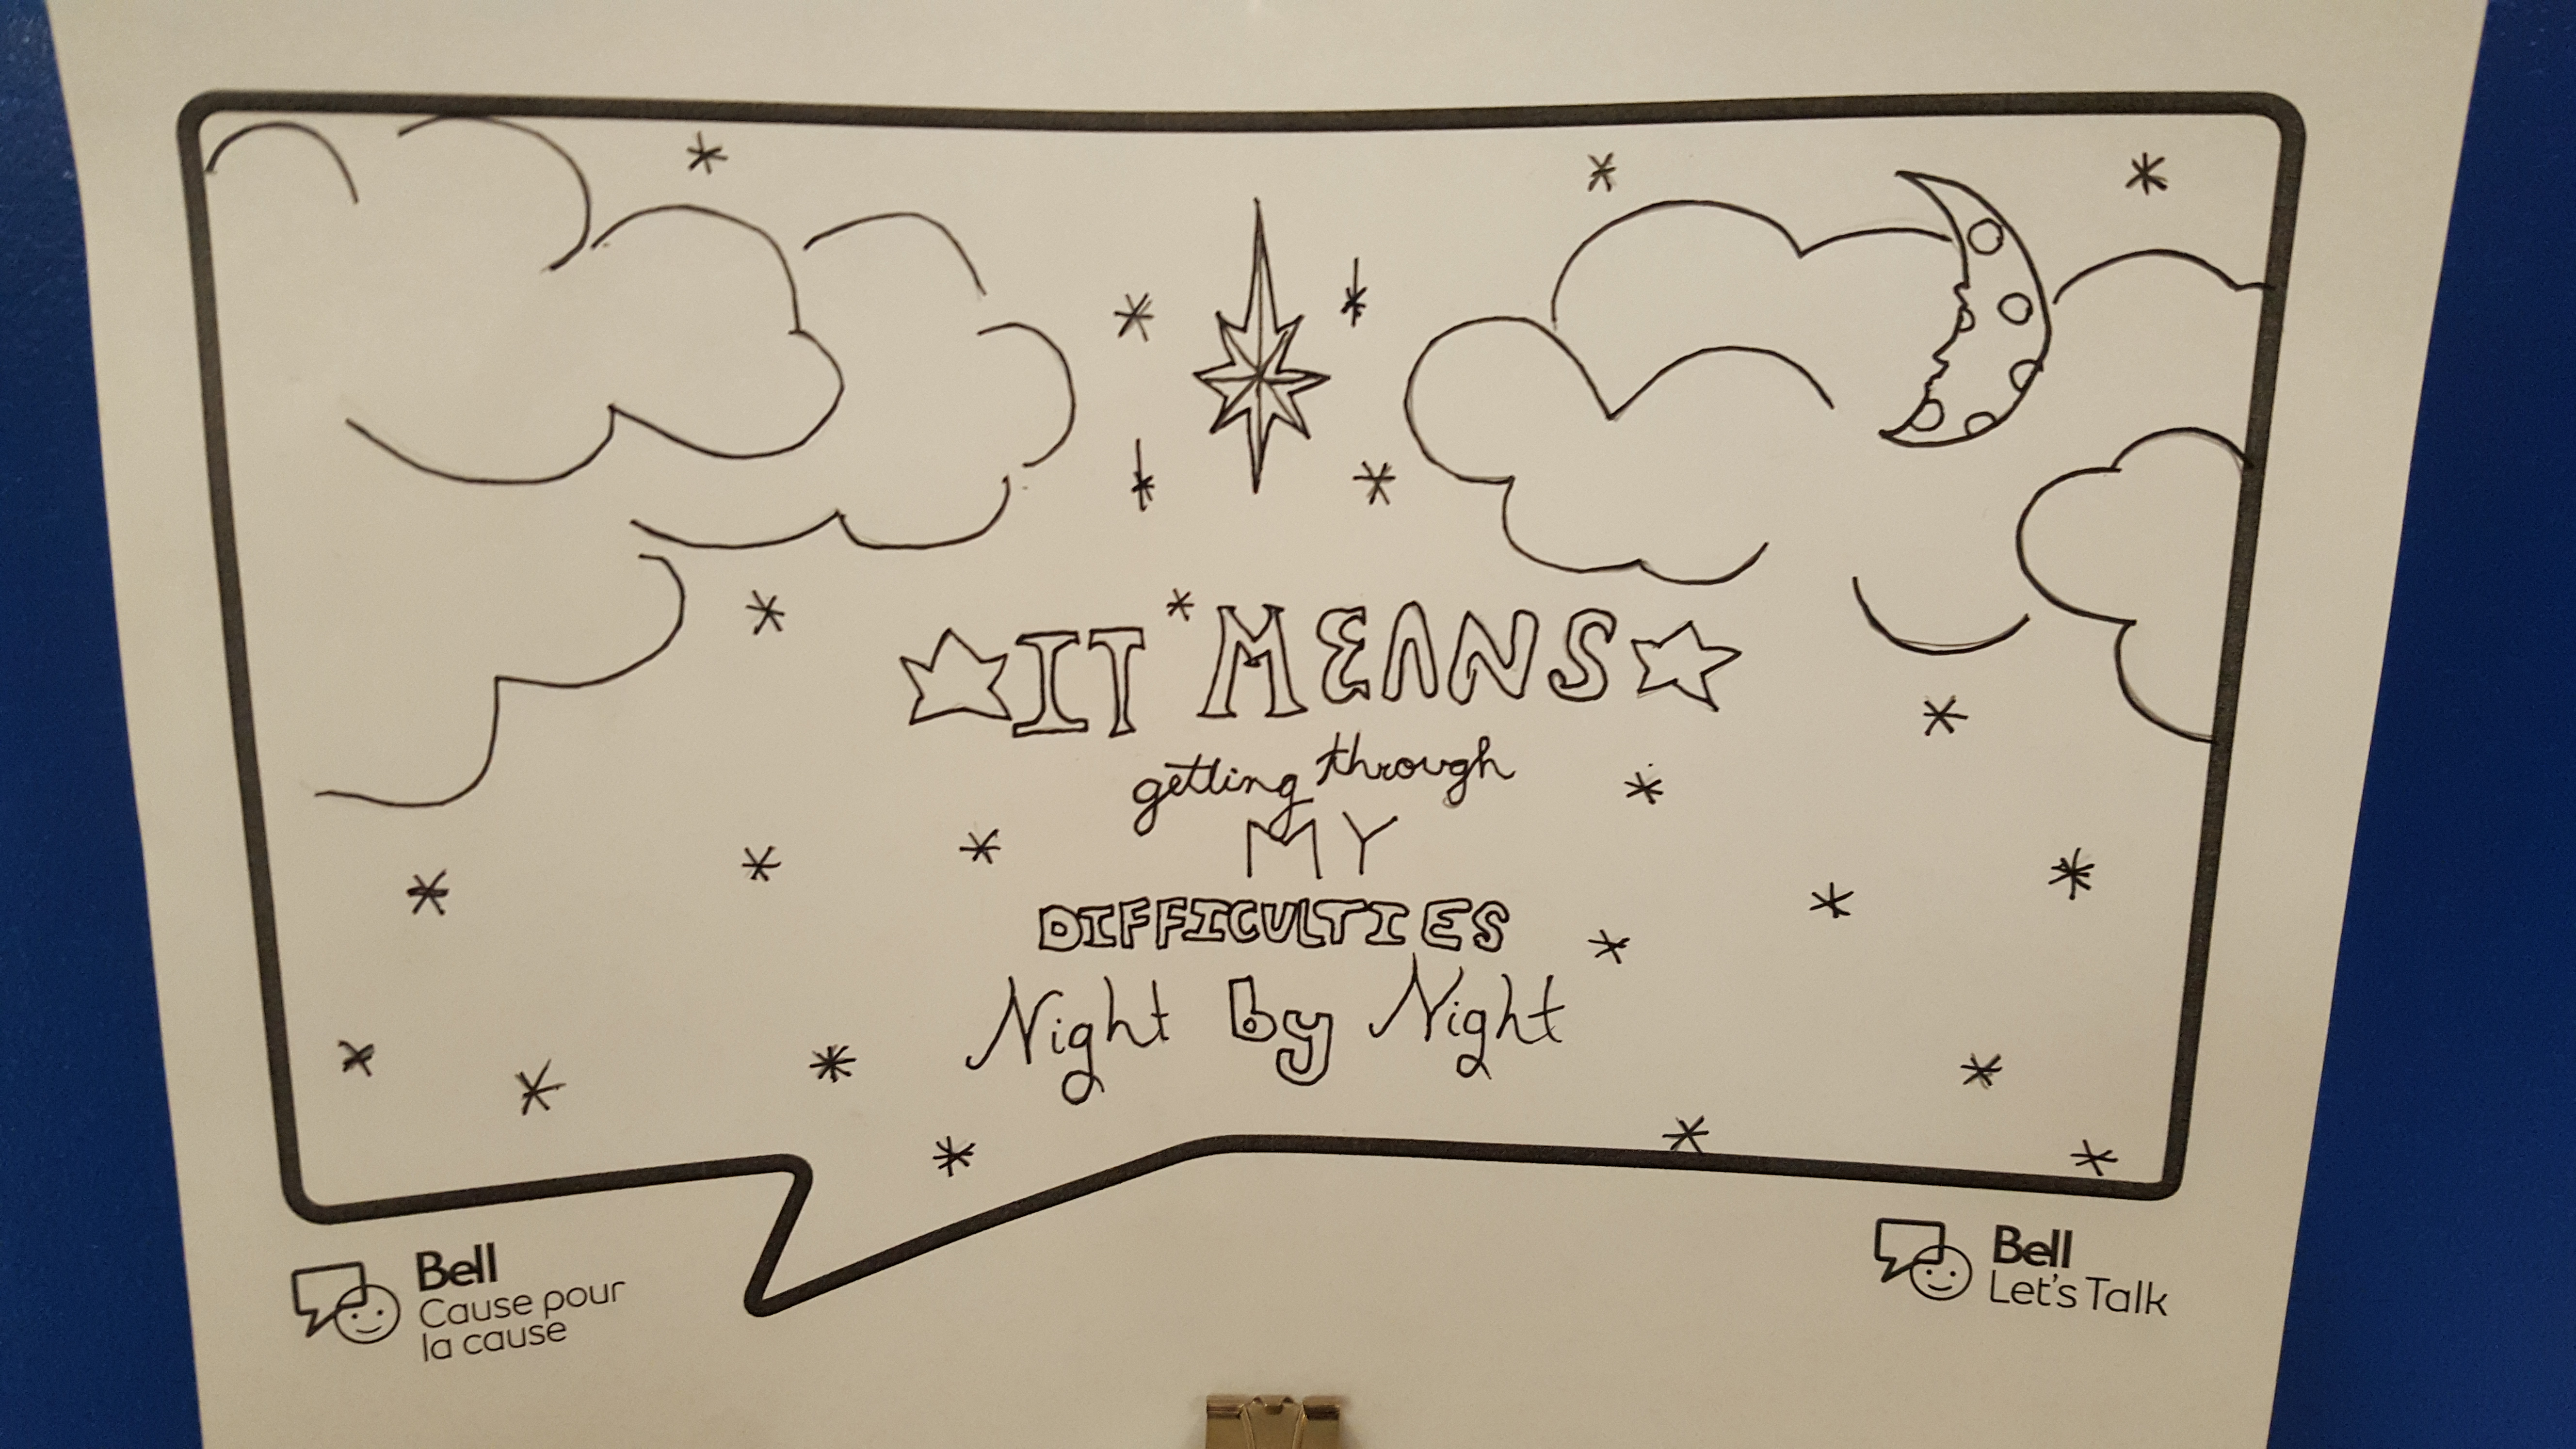 IT MEANS
getting through
MY
DIFFICULTIES
Night by Night
Bell
Cause pour
la cause
Bell
Let's Talk